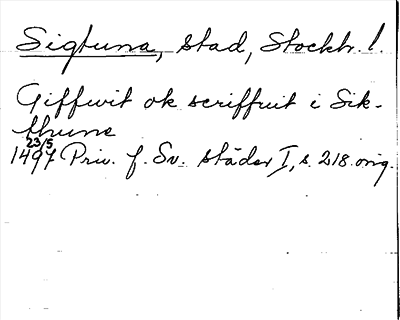 Sigtuna, stad, Stockh. l.
Giffwit ok scriffuit i Sik-
thune
23/5
1497 Priv. f. Sv. städer I, s. 218. orig.